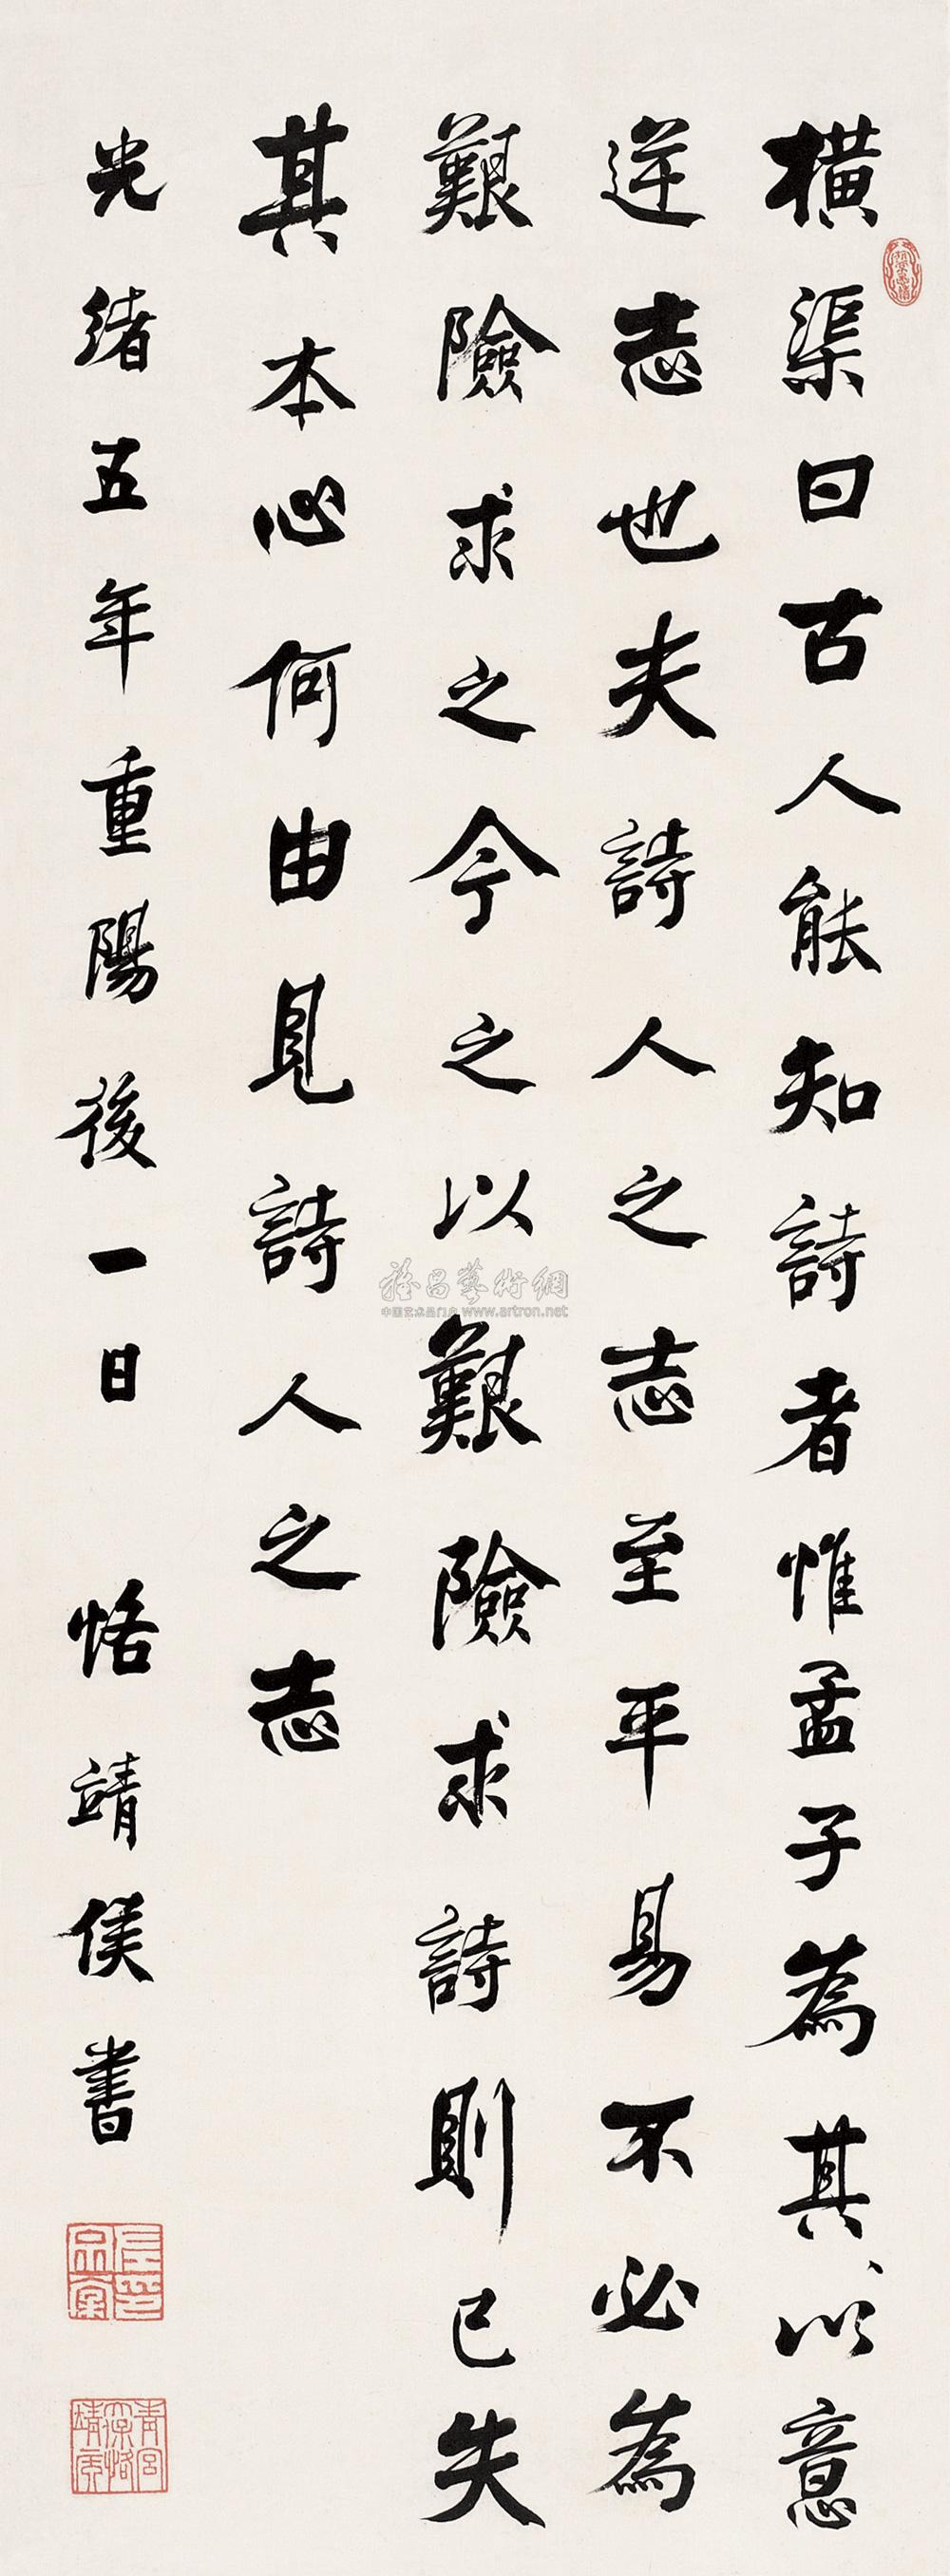 橫渠曰古人能知詩者惟孟子為其以意
逆志也夫詩人之志至平易不必為
艱險求之今之以艱險求詩則已失
其本心何由見詩人之志
光緒五年重陽後一日 恪靖侯書
左宗棠印
青宮太保恪靖侯
雅昌藝術網
中国艺术品门户 www.artron.net